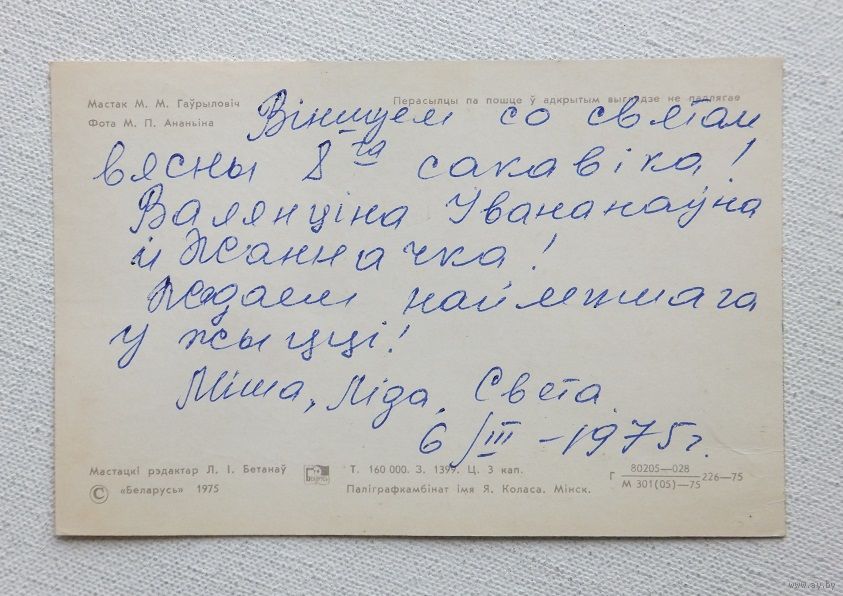 Мастак М. М. Гаўрыловіч
Фота М. П. Ананьіна
Перасылцы па пошце ў адкрытым выглядзе не падлягае
Віншуем со святам
вясны 8га сакавіка!
Валянціна Увананаўна
й Жанначка!
Жадаем найлепшага
у жыцці!
Міша, Ліда, Света
6/III – 1975г.
Мастацкі рэдактар Л. І. Бетанаў
© «Беларусь» 1975
Беларусь
Т. 160 000. З. 1399. Ц. 3 кап.
Паліграфкамбінат імя Я. Коласа. Мінск.
Г 80205—028 / М 301(05)—75 226—75
www.ay.by